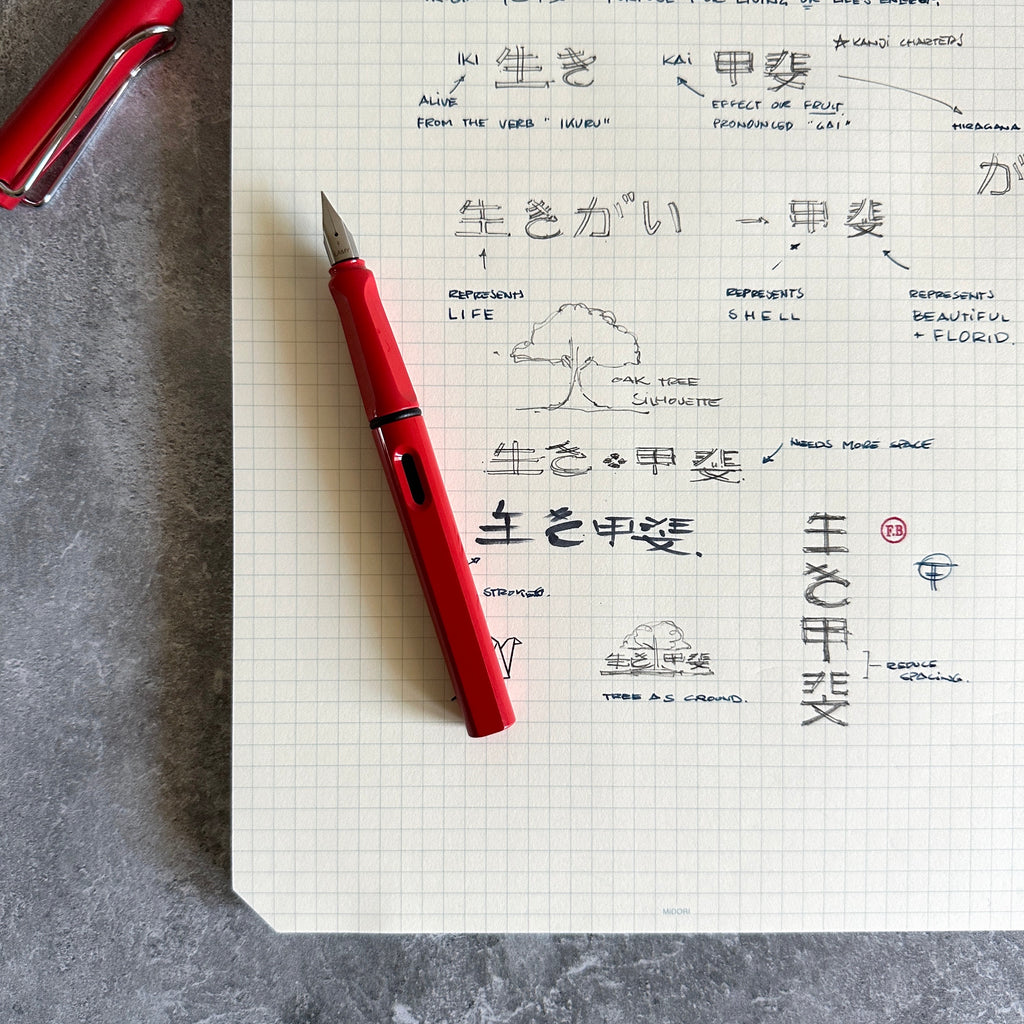 PURPOSE FOR LIVING OR LIFE'S ENERGY.
IKI 生き KAI 甲斐 ☆ KANJI CHARTERS
ALIVE
FROM THE VERB "IKURU"
EFFECT OR FRUIT.
PRONOUNCED "GAI"
HIRAGANA
が
生きがい → 甲斐
LAMY
REPRESENTS
LIFE
REPRESENTS
SHELL
REPRESENTS
BEAUTIFUL
+ FLORID.
OAK TREE
SILHOUETTE
生き甲斐.
NEEDS MORE SPACE
生き甲斐.
STROKES.
生
き
甲
斐
F.B
REDUCE
SPACING.
生き甲斐
TREE AS GROUND.
MIDORI